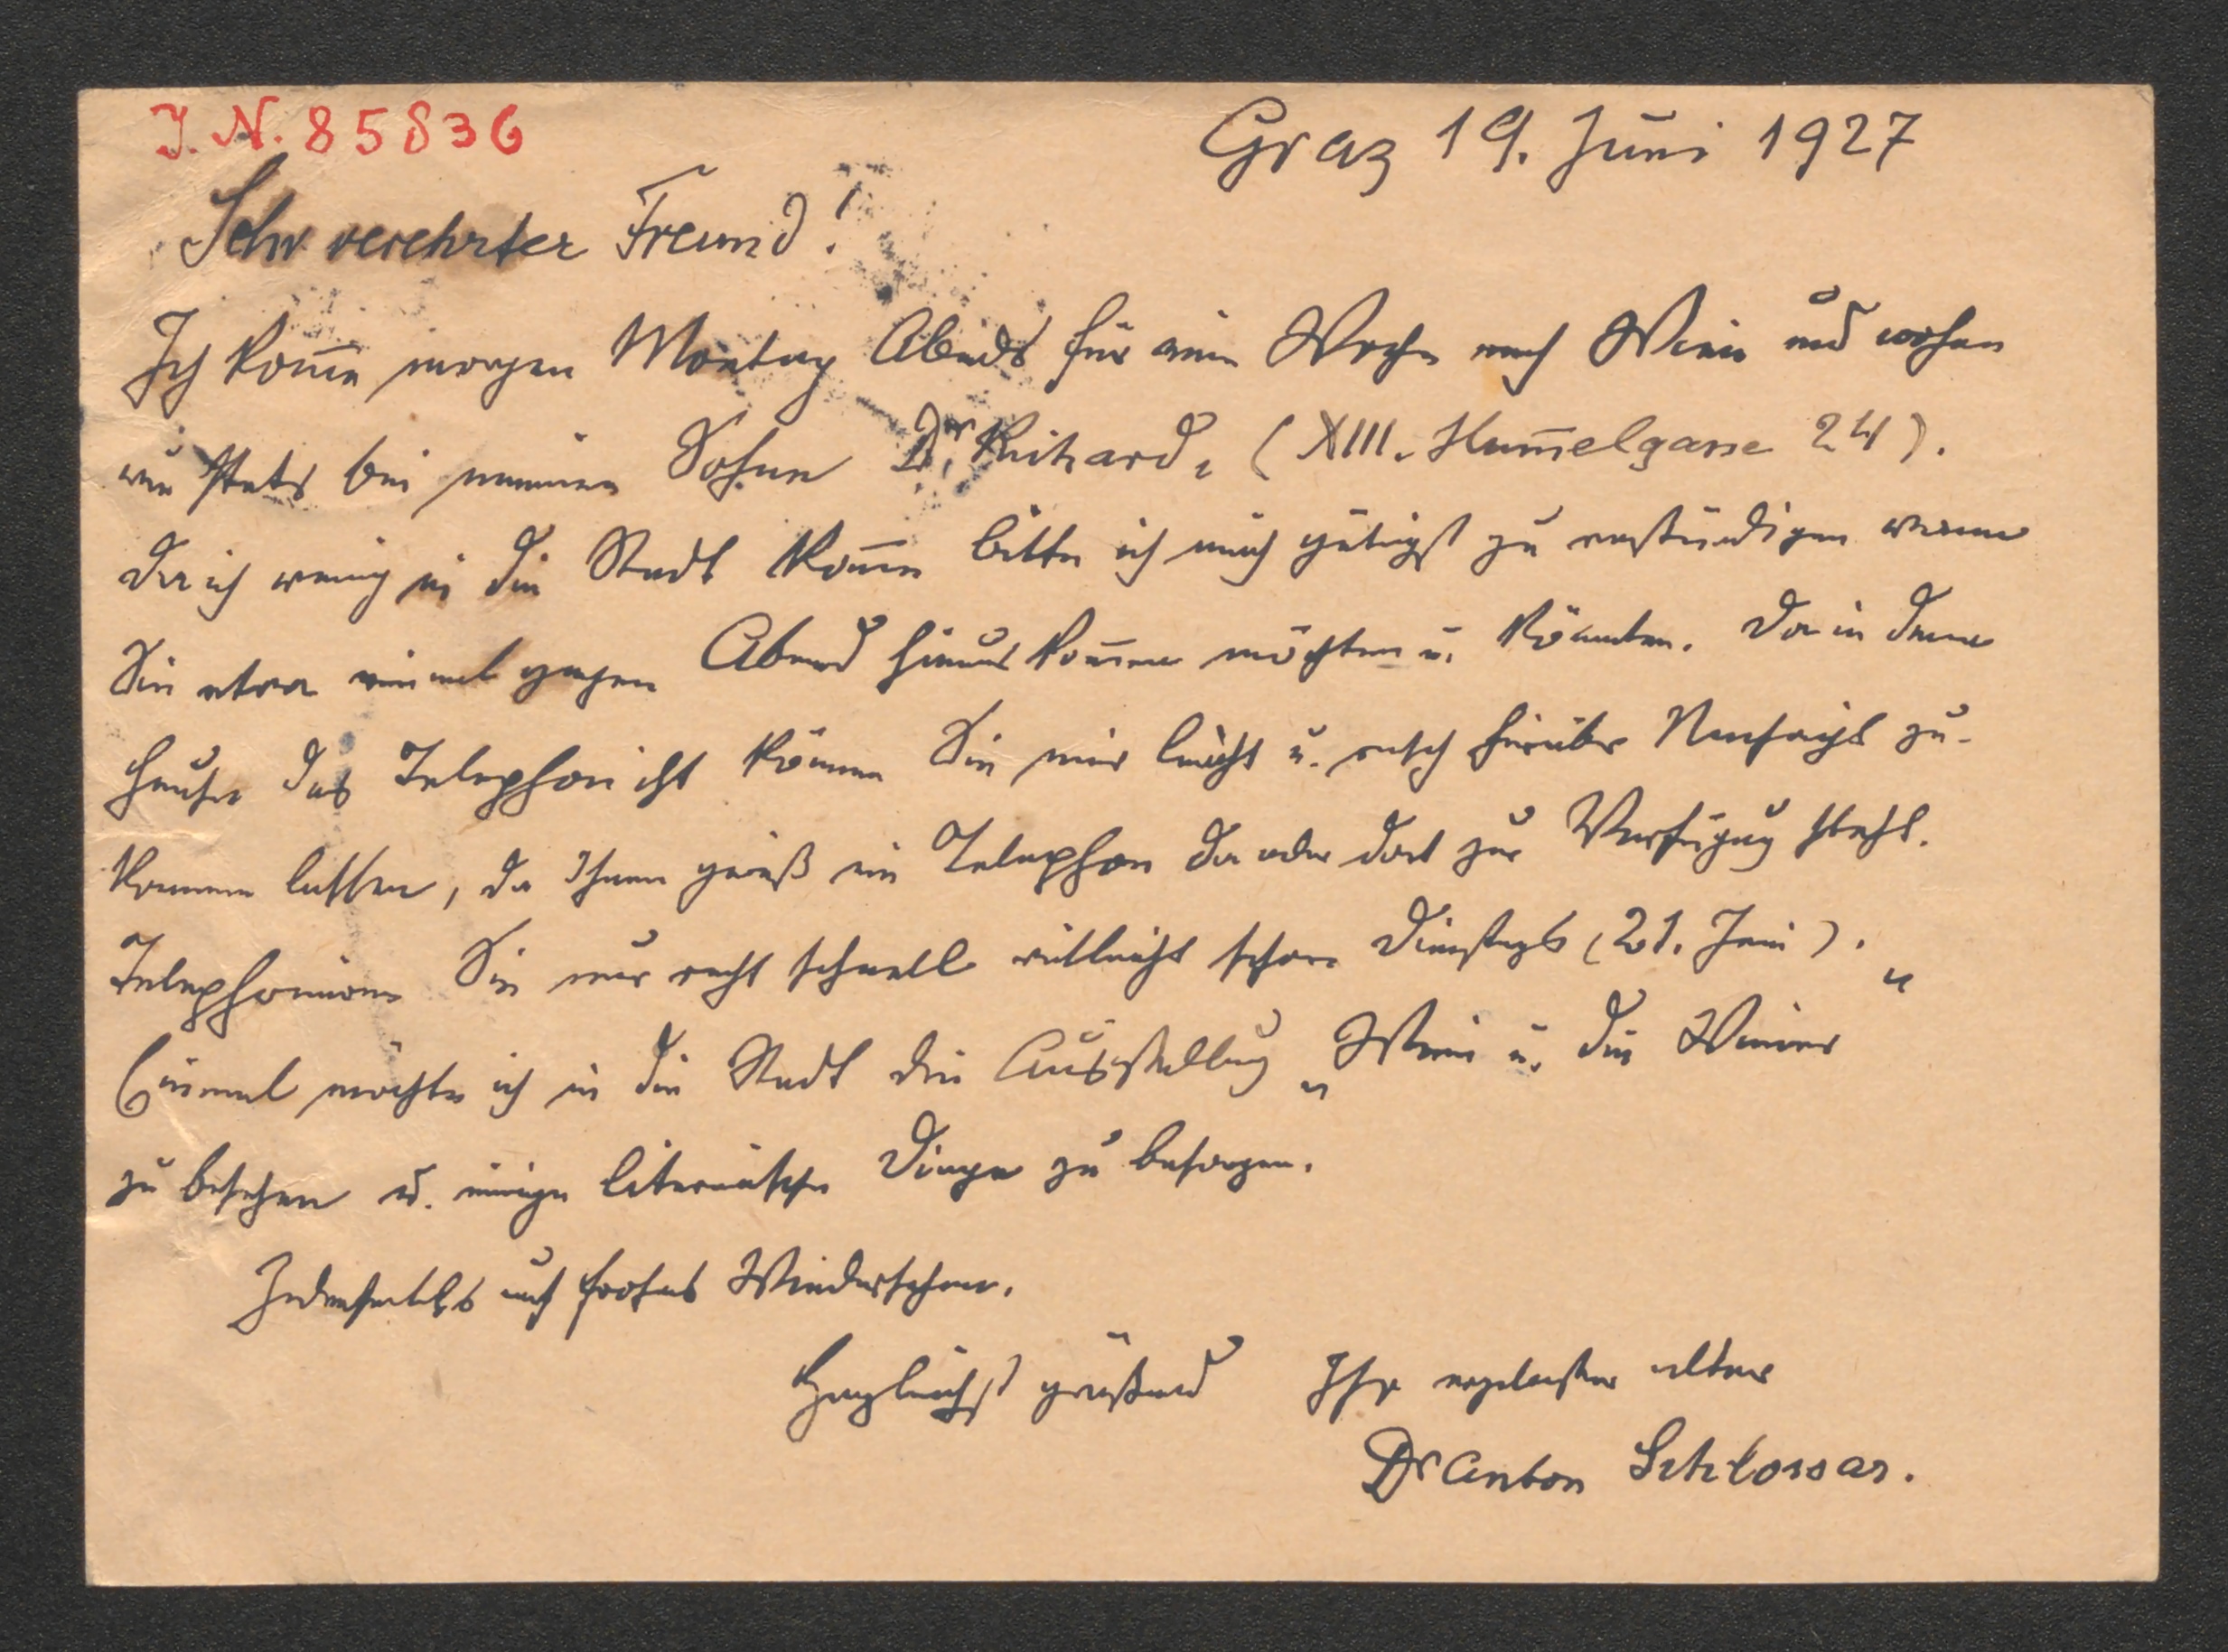 J. N. 85836
Graz 19. Juni 1927
Sehr verehrter Freund!
Ich kom̄e morgen Montag Abends für eine Woche nach Wien und wohne
wie stets bei meinem Sohne Dr. Richard, (XIII. Hum̄elgasse 24).
Da ich wenig in die Stadt kom̄e bitte ich mich gütigst zu verständigen wann
Sie etwa einmal gegen Abend hinauskom̄en möchten u. könnten. Da in dem
Hause das Telephon ist können Sie mir leicht u. rasch hierüber Nachricht zu-
kommen lassen, da Ihnen gewiß ein Telephon da oder dort zur Verfügung steht.
Telephoniren Sie nur recht schnell vielleicht schon Dienstags (21. Juni).
Einmal möchte ich in die Stadt die Ausstellung „Wien u. die Wiener“
zu besehen u. einige literarische Dinge zu besorgen.
Jedenfalls auf frohes Wiedersehen.
Herzlichst grüßend Ihr ergebenster alter
Dr Anton Schlossar.